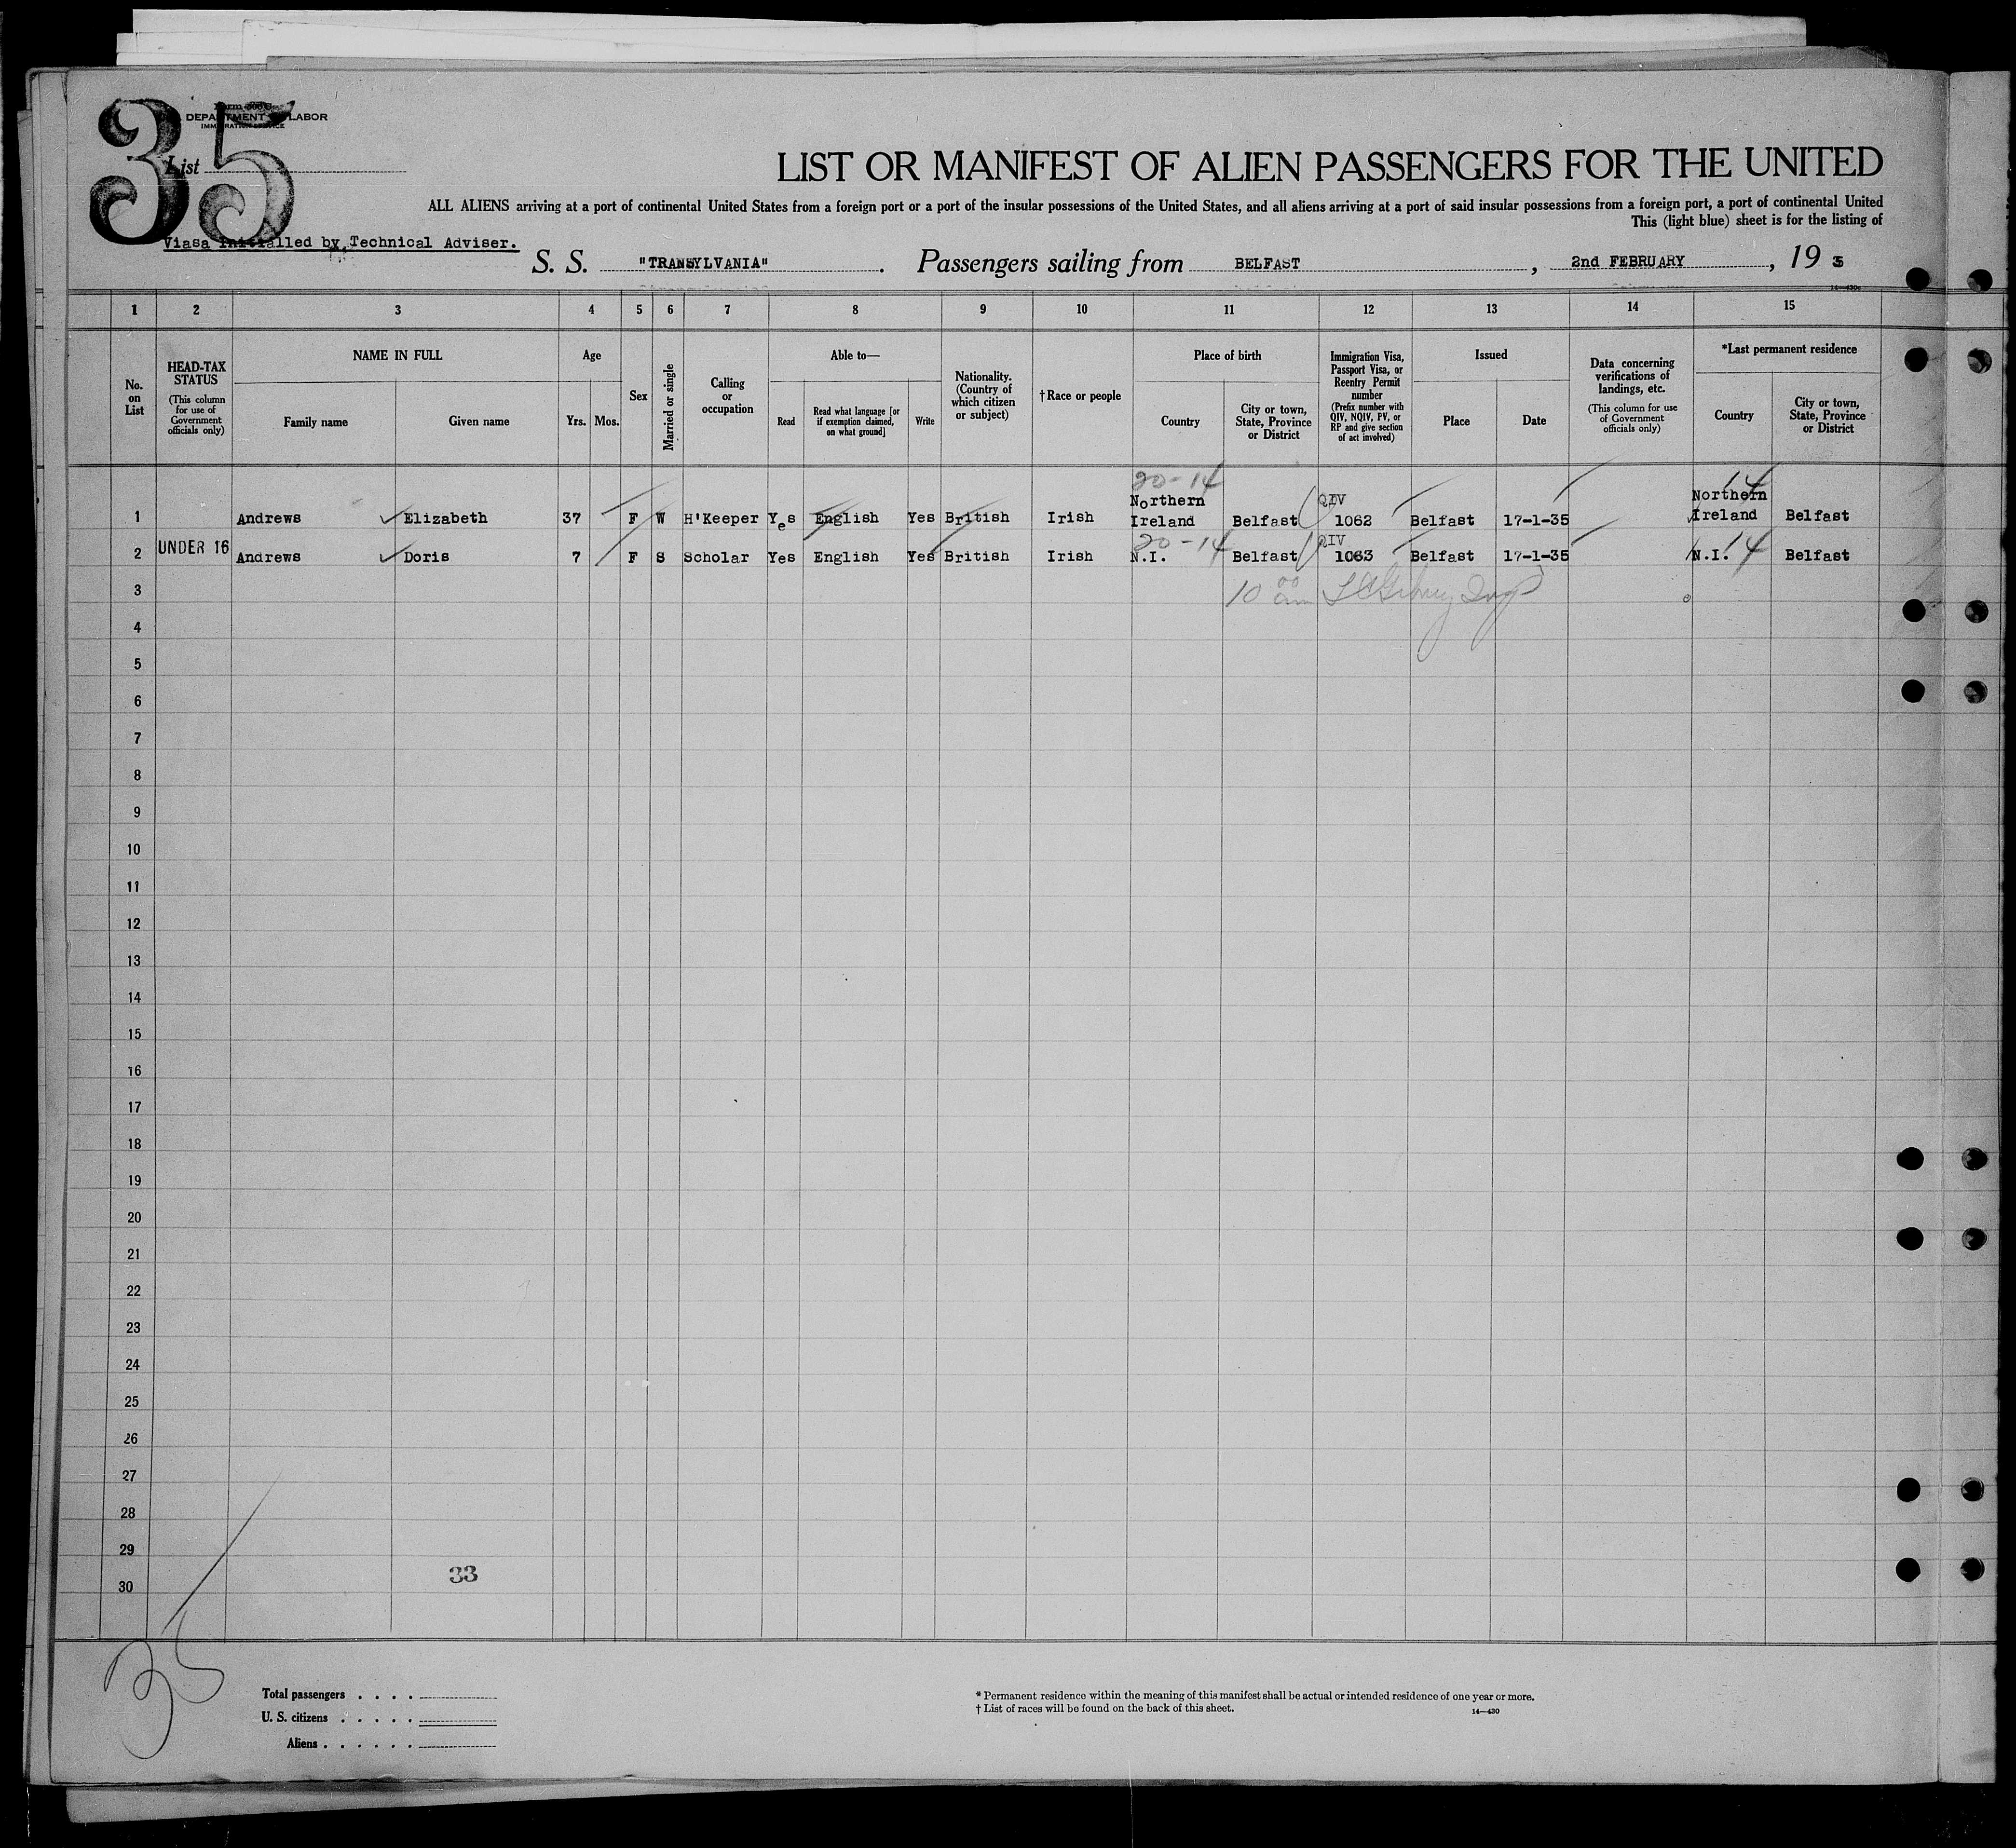 35
DEPARTMENT LABOR
IMMIGRATION SERVICE
List
LIST OR MANIFEST OF ALIEN PASSENGERS FOR THE UNITED
ALL ALIENS arriving at a port of continental United States from a foreign port or a port of the insular possessions of the United States, and all aliens arriving at a port of said insular possessions from a foreign port, a port of continental United
This (light blue) sheet is for the listing of
Viasa Initialled by Technical Adviser.
S. S. "TRANSYLVANIA". Passengers sailing from BELFAST, 2nd FEBRUARY, 19 3
1 2 3 4 5 6 7 8 9 10 11 12 13 14 15
No. on List
HEAD-TAX STATUS
(This column for use of Government officials only)
NAME IN FULL
Family name
Given name
Age
Yrs.
Mos.
Sex
Married or single
Calling or occupation
Able to—
Read
Read what language [or if exemption claimed, on what ground]
Write
Nationality. (Country of which citizen or subject)
†Race or people
Place of birth
Country
City or town, State, Province or District
Immigration Visa, Passport Visa, or Reentry Permit number
(Prefix number with QIV, NQIV, PV, or RP and give section of act involved)
Issued
Place
Date
Data concerning verifications of landings, etc.
(This column for use of Government officials only)
*Last permanent residence
Country
City or town, State, Province or District
20-14 14
Northern QIV Northern
1 Andrews Elizabeth 37 F W H'Keeper Yes English Yes British Irish Ireland Belfast 1062 Belfast 17-1-35 Ireland Belfast
20-14 QIV 14
2 UNDER 16 Andrews Doris 7 F S Scholar Yes English Yes British Irish N.I. Belfast 1063 Belfast 17-1-35 N.I. Belfast
3 10 00 am
4
5
6
7
8
9
10
11
12
13
14
15
16
17
18
19
20
21
22
23
24
25
26
27
28
29
33
30
35
Total passengers . . . .
U. S. citizens . . . . .
Aliens . . . . . .
* Permanent residence within the meaning of this manifest shall be actual or intended residence of one year or more.
† List of races will be found on the back of this sheet.
14—430